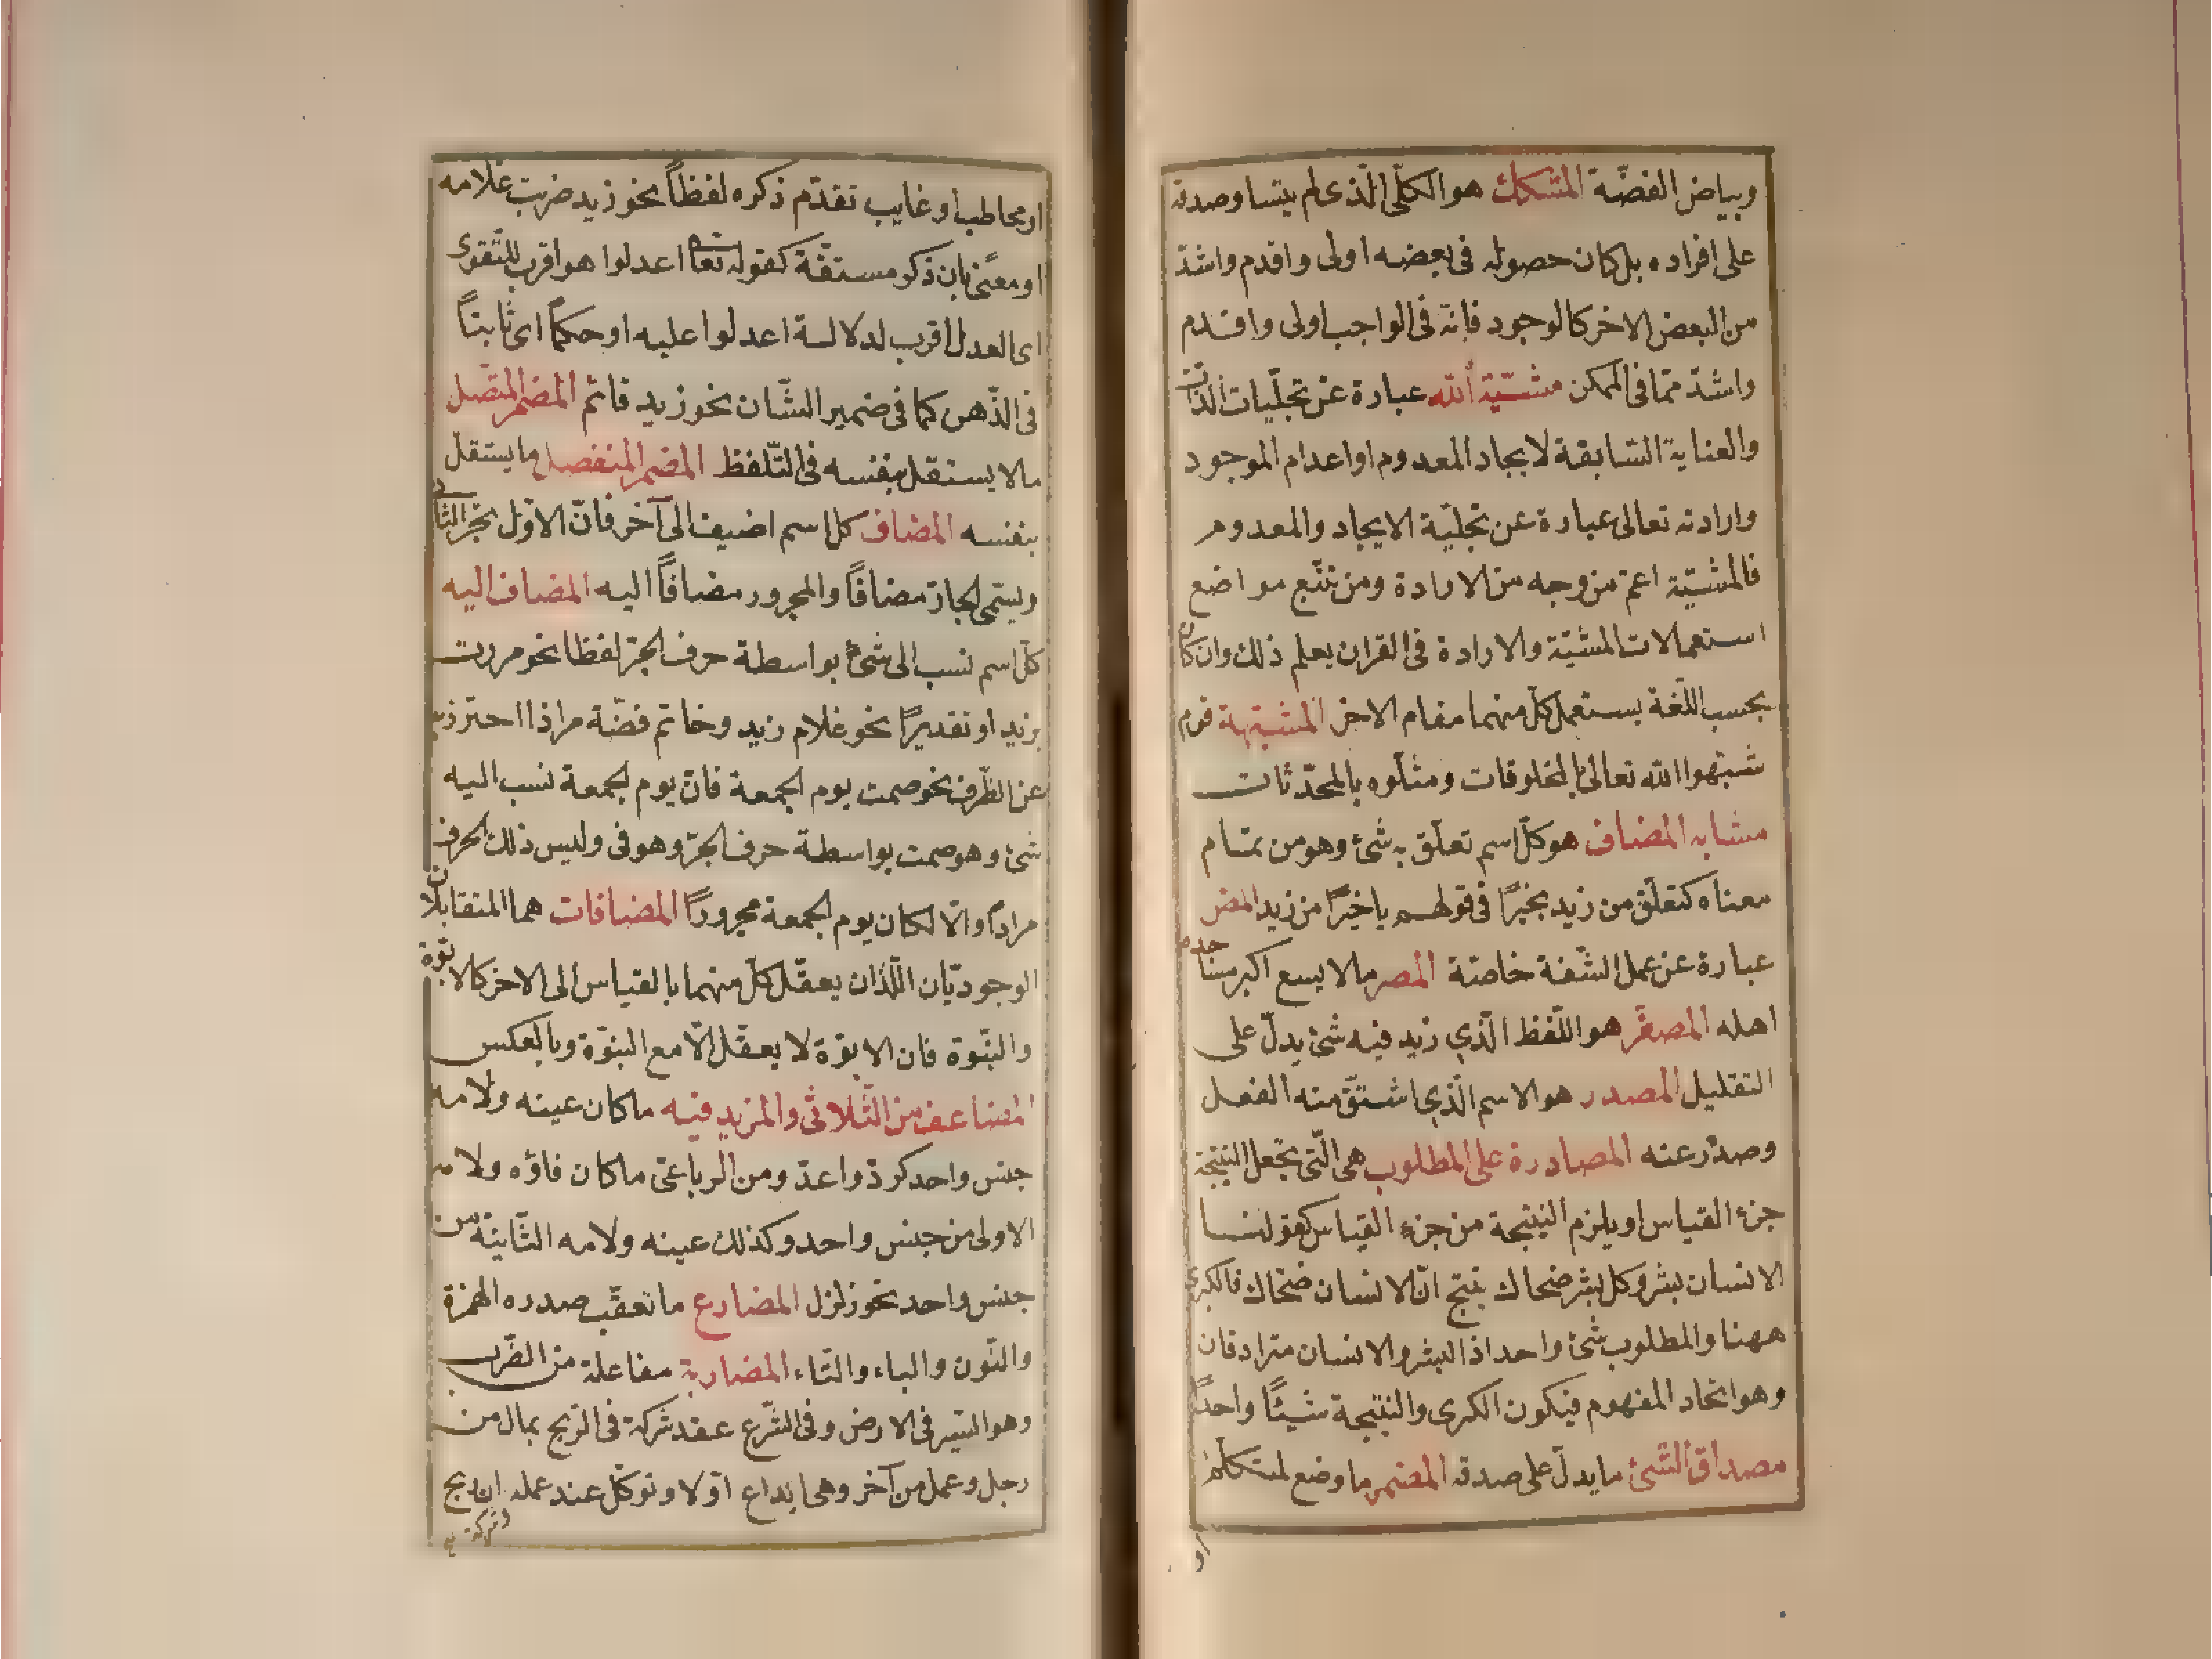 وبياض الفضّة المشكك هو الكلّى الّذى لم يتساو صدقه
على افراده بل كان حصوله فى بعضه اولى واقدم واشدّ
من البعض الاخر كالوجود فانّه فى الواجب اولى واقدم
واشدّ ممّا فى الممكن مشيّة الله عبارة عن تجلّيات الذّات
والعناية السّابقة لايجاد المعدوم او اعدام الموجود
وارادته تعالى عبارة عن تجليّة الايجاد والمعدوم
فالمشيّة اعمّ من وجه من الارادة ومن تتبّع مواضع
استعمالات المشيّة والارادة فى القران يعلم ذلك وان كان
بحسب اللّغة يستعمل كلّ منهما مقام الاخر المشبّهة قوم
شبّهوا الله تعالى بالمخلوقات ومثّلوه بالمحدّثات
مشابه المضاف هو كلّ اسم تعلّق به شئ وهو من تمام
معناه كتعلّق من زيد بخيرًا فى قولهم ياخيرًا من زيد المض
عبارة عن عمل الشّفة خاصّة المصر مالا يسع اكبر مساجده
اهله المصغّر هو اللّفظ الّذي زيد فيه شئ يدلّ على
التقليل المصدر هو الاسم الّذي اشتقّ منه الفعل
وصدر عنه المصادرة على المطلوب هى الّتى تجعل النتيجة
جزء القياس او يلزم النتيجة من جزء القياس كقولنا
الانسان بشر وكل بشر ضحاك ينتج انّ الانسان ضحّاك فالكبرى
ههنا والمطلوب شئ واحد اذ البشر والانسان مترادفان
وهو اتحاد المفهوم فيكون الكبرى والنتيجة شيئًا واحدًا
مصداق الشئ ما يدلّ على صدقه المضمر ما وضع لمتكلّم
او
او مخاطب او غايب تقدّم ذكره لفظاً نحو زيد ضربت غلامه
او معنًى بان ذكر مستقّة كقوله تعا اعدلوا هو اقرب للتّقوى
اى العدل اقرب لدلالة اعدلوا عليه او حكمًا اى ثابتاً
فى الذّهن كما فى ضمير الشّان نحو زيد قائم المضمر المتّصل
مالا يستقل بنفسه فى التّلفظ المضمر المنفصل ما يستقل
بنفسه المضاف كل اسم اضيف الى آخر فانّ الاوّل يجرّ الثّانى
ويسمّى الجارّ مضافاً والمجرور مضافاً اليه المضاف اليه
كلّ اسم نسب الى شئ بواسطة حرف الجرّ لفظا نحو مررت
بزيد او تقديرًا نحو غلام زيد وخاتم فضّة مرادا احترز به
عن الظّرف نحو صمت يوم الجمعة فانّ يوم الجمعة نسب اليه
شئ وهو صمت بواسطة حرف الجرّ وهو فى وليس ذلك الحرف
مراداً والّا لكان يوم الجمعة مجروراً المضافات هما المتقابلان
الوجوديّان اللّذان يعقّل كلّ منهما بالقياس الى الاخر كالابوّة
والبنّوة فان الابوّة لا يعقّل الّا مع البنوّة وبالعكس
المضاعف من الثّلاثى والمزيد فيه ماكان عينه ولامه
جنس واحد كردّ واعدّ ومن الرباعىّ ماكان فاؤه ولامه
الاولى من جنس واحد وكذلك عينه ولامه الثّانية من
جنس واحد نحو زلزل المضارع ما تعقّب صدره الهمزة
والنّون والياء والتّاء المضاربة مفاعلة من الضّرب
وهو السّير فى الارض وفى الشّرع عقد شركة فى الرّبح بمال من
رجل وعمل من آخر وهى ايداع اوّلا وتوكّل عند عمله ان ربح
وشركة